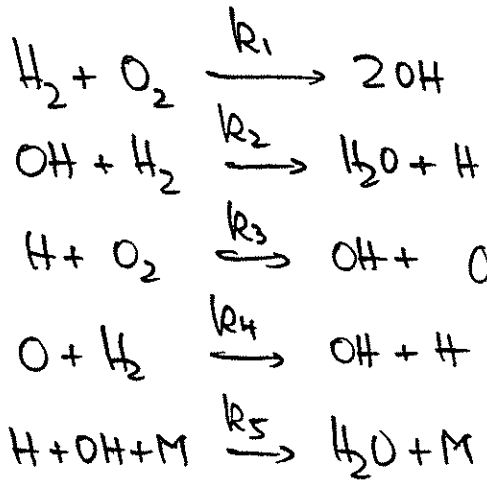 H₂ + O₂ →k₁ 2OH
OH + H₂ →k₂ H₂O + H
H + O₂ →k₃ OH + O
O + H₂ →k₄ OH + H
H + OH + M →k₅ H₂O + M